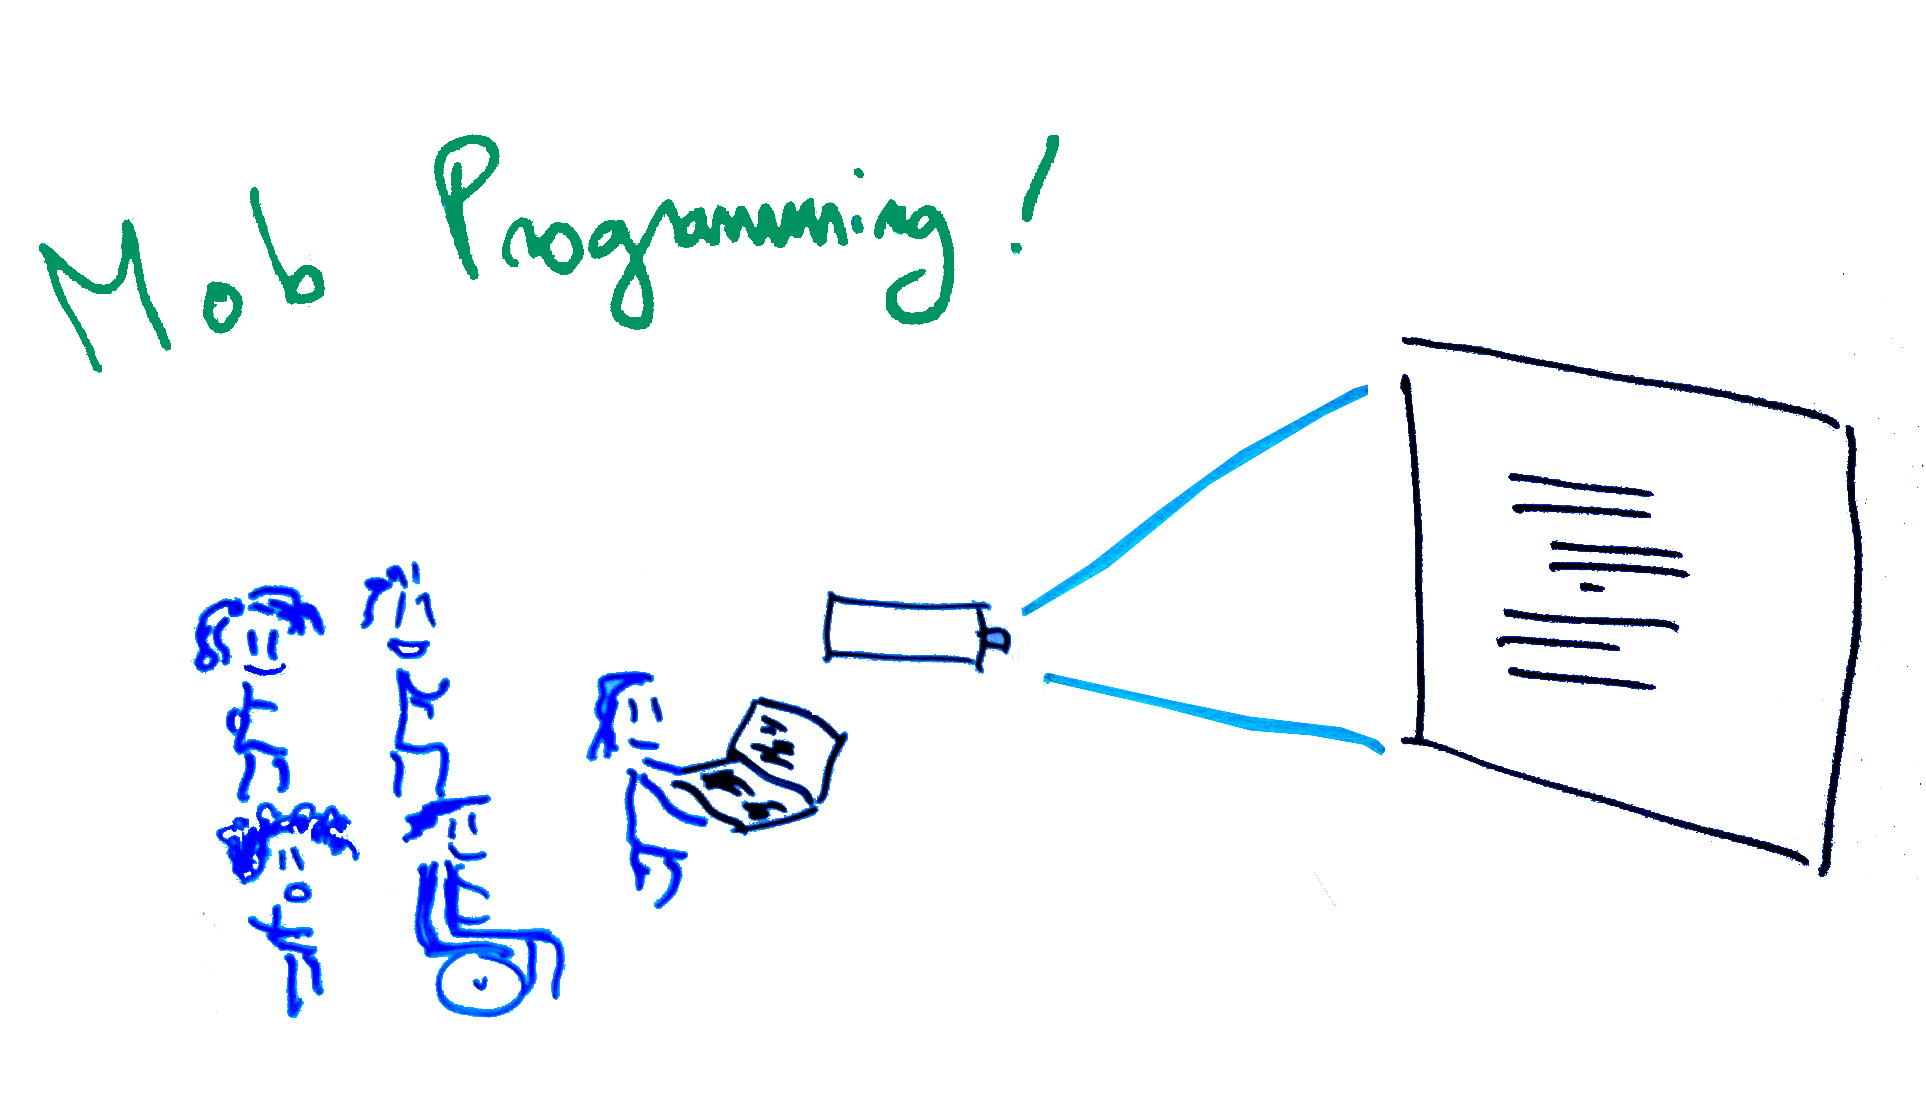 Mob Programming!